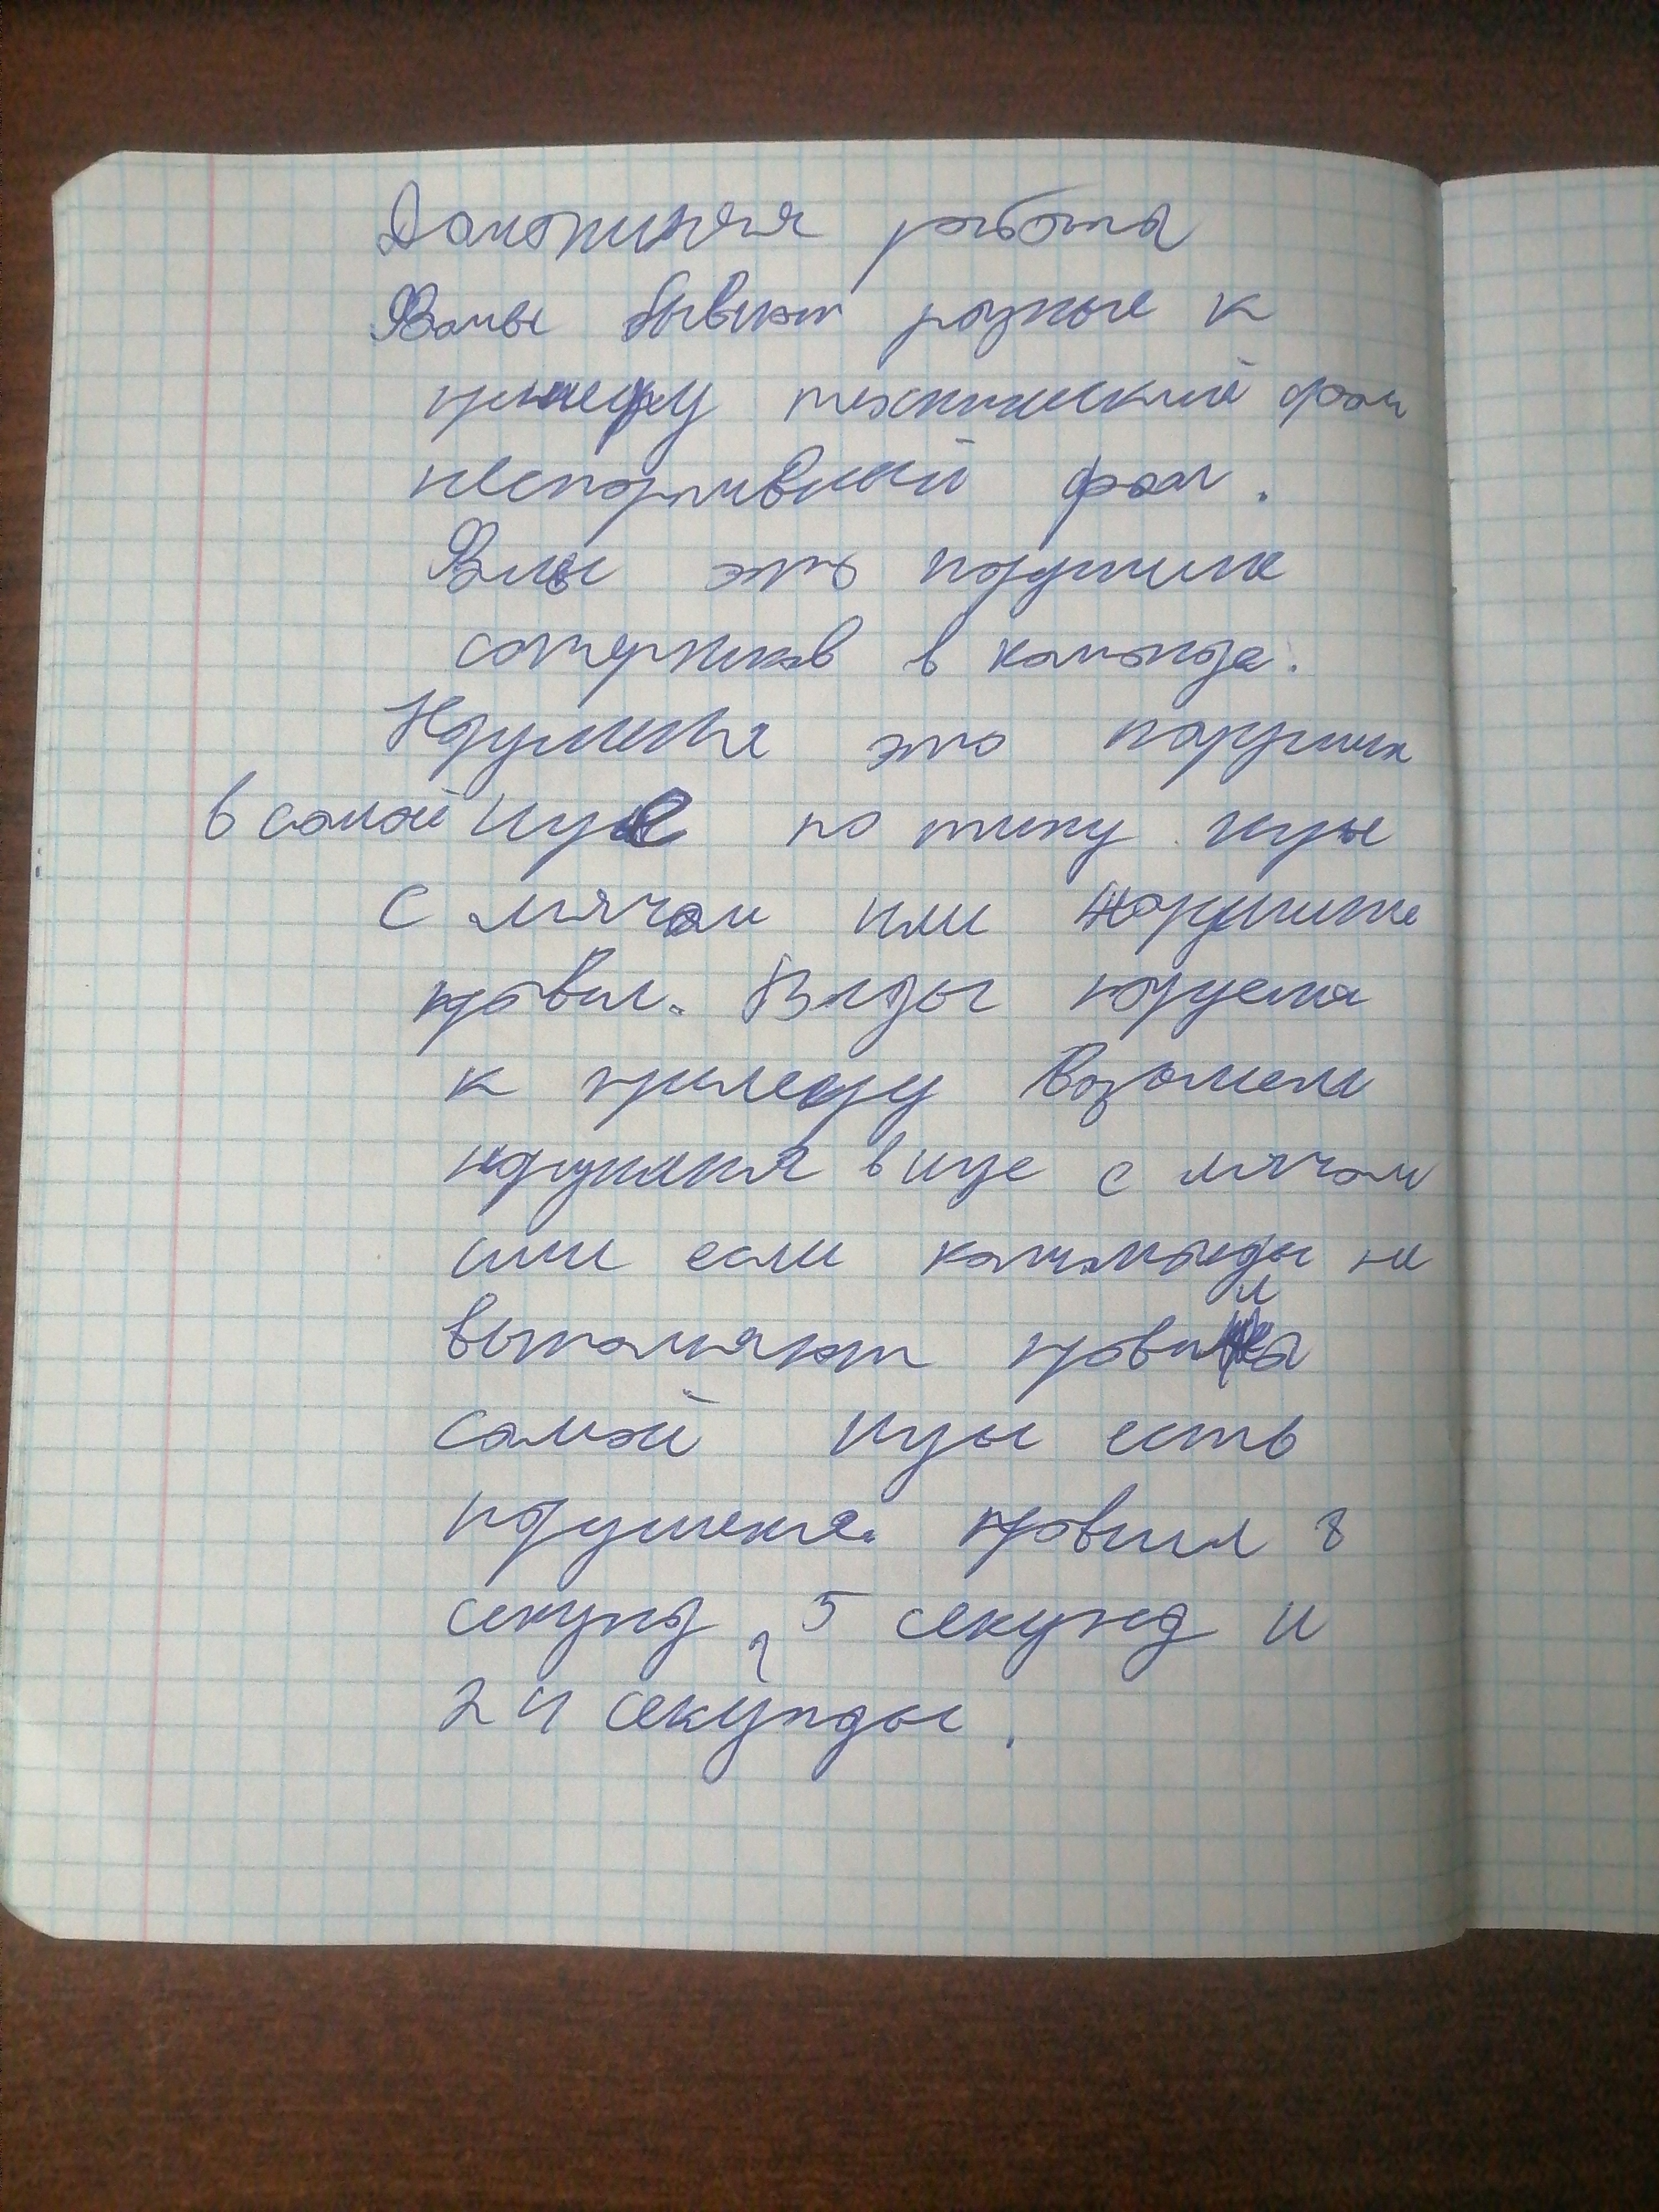 Домашняя работа
Фолы бывают разные к
примеру технический фол
неспортивный фол.
Фолы это нарушил
соперников в команде.
Нарушения это наруши
в самой игре по типу игры
с мячом или нарушите
правил. Виды нарушения
к примеру возьмем
нарушения в игре с мячом
или если команды не
выполняют правила
самой игры есть
нарушения. правил 8
секунд, 5 секунд и
24 секунды.